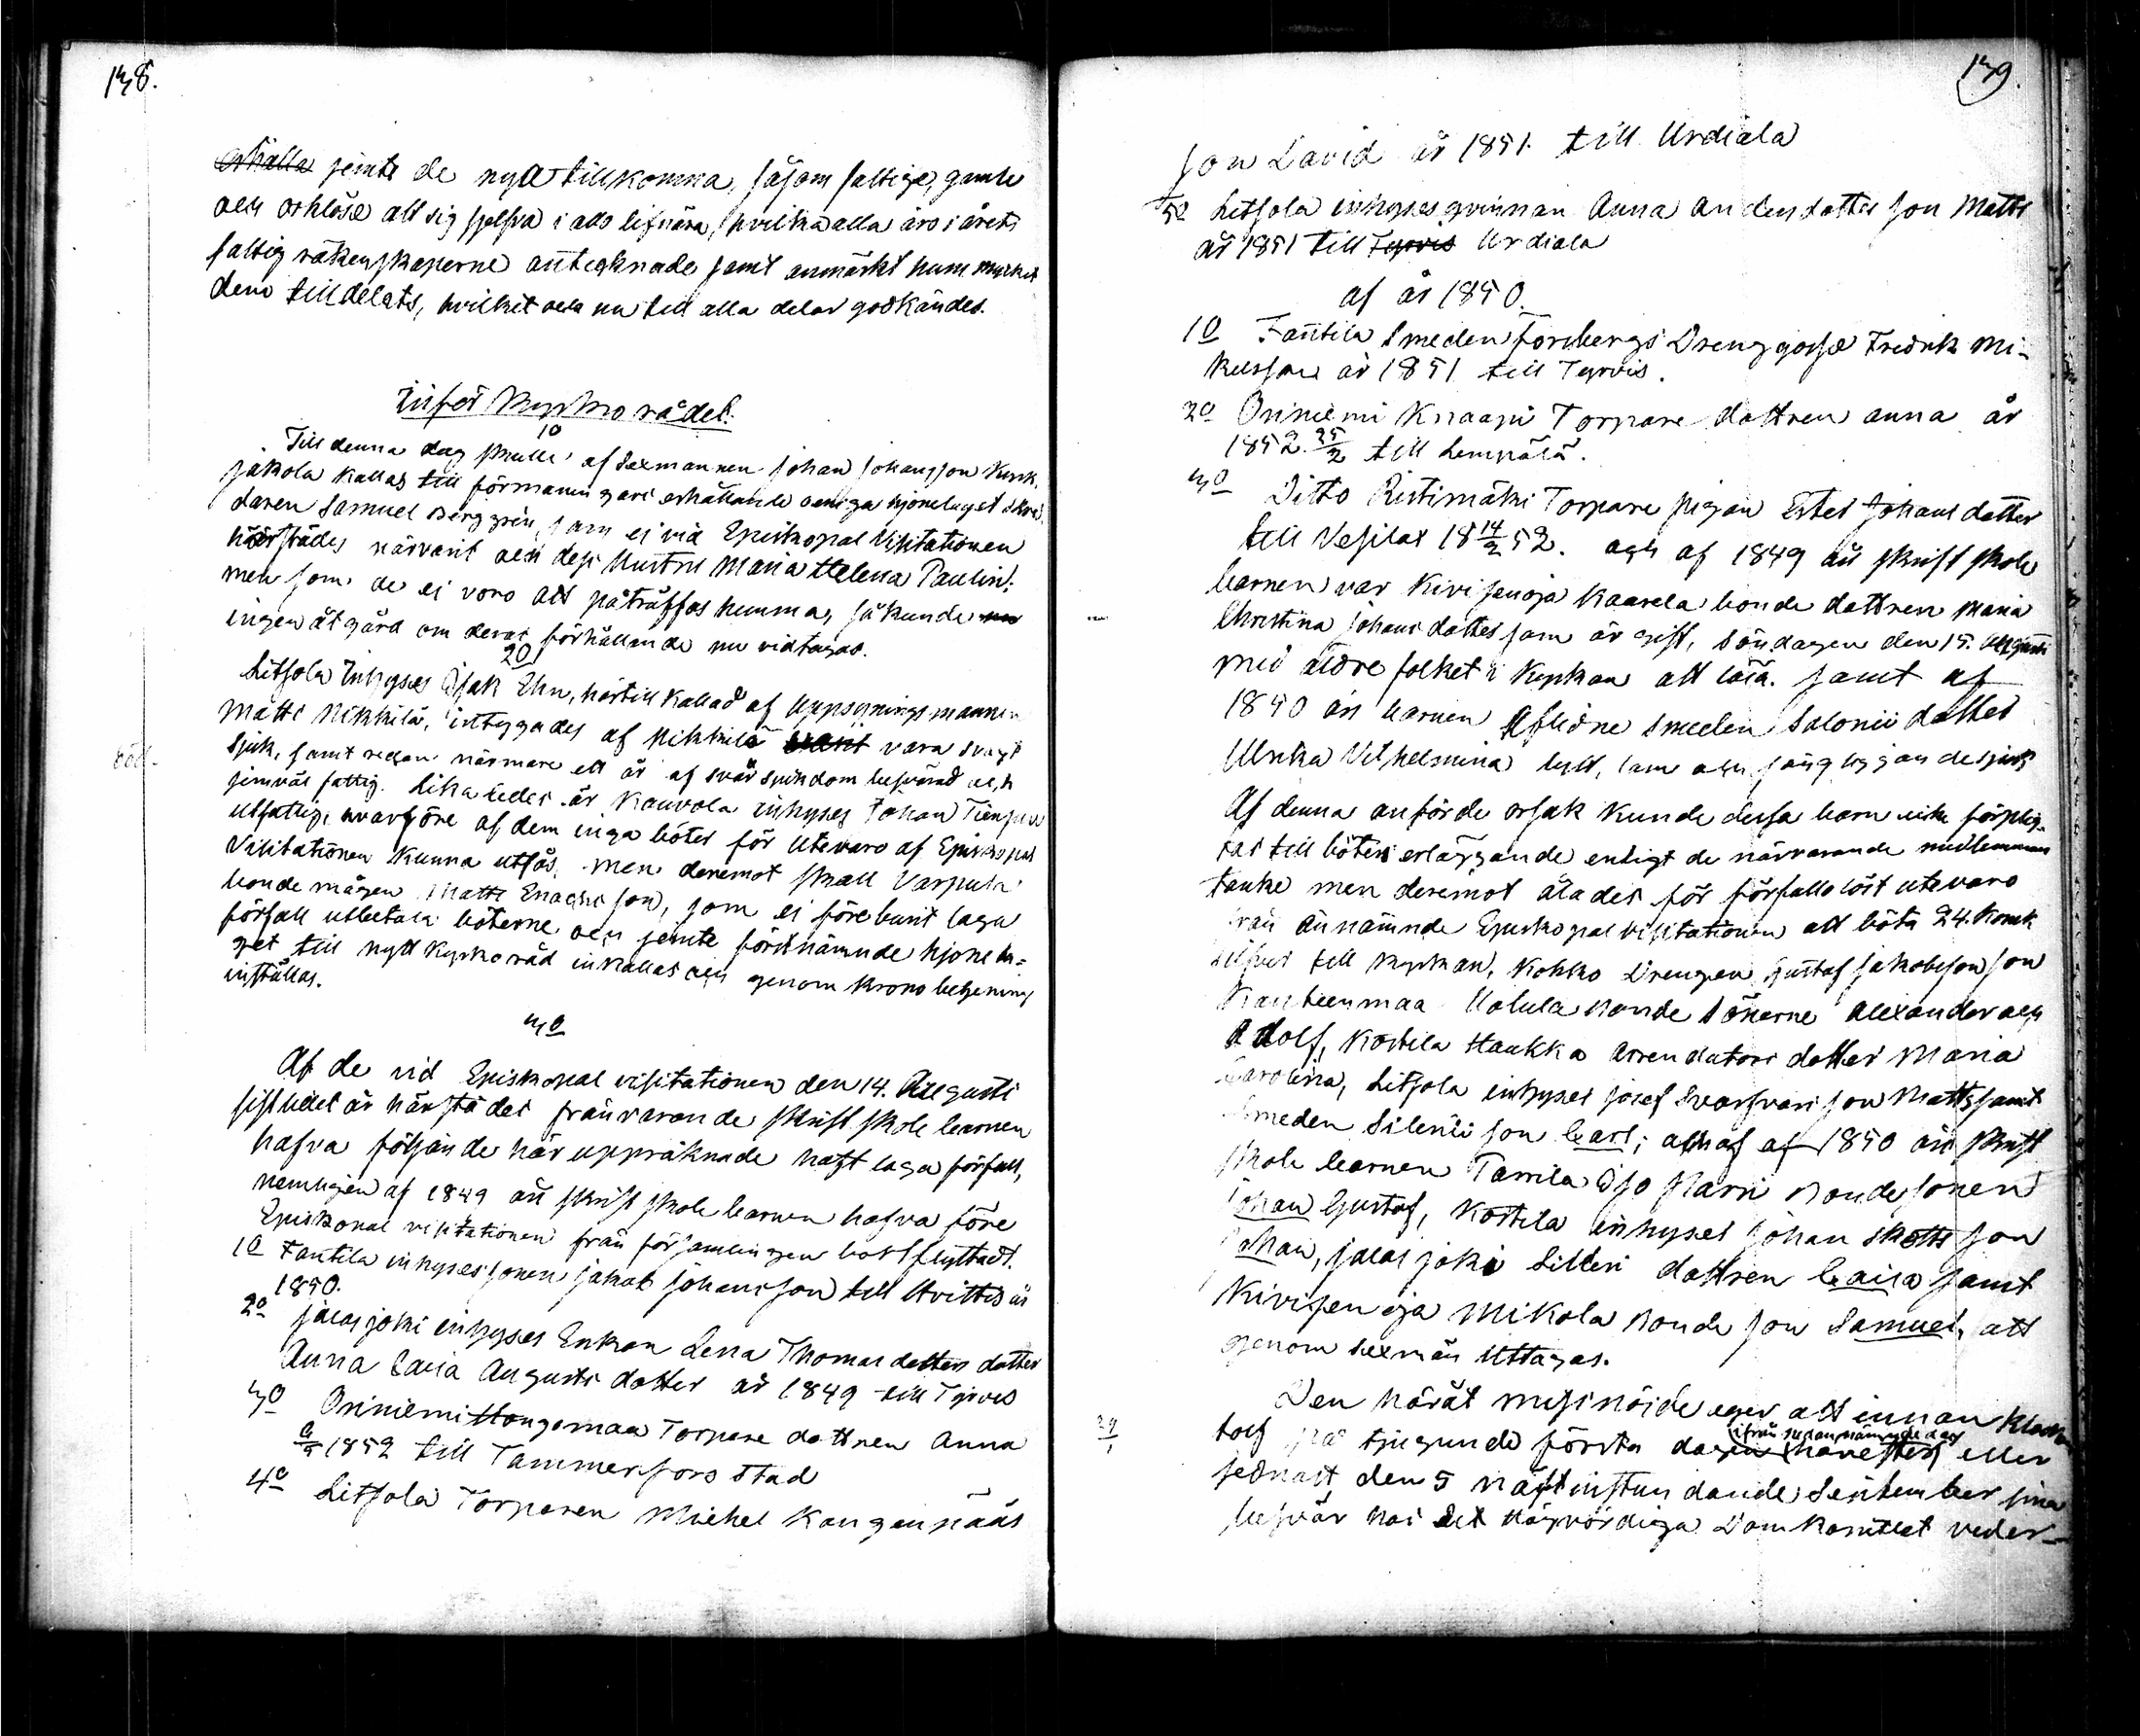 138.
erhålla jemte de nya tillkomna, såsom fattige, gamle
och orklöse att sig sjelfva i allo lifnära, hvilka alla äro i årets
fattig räkenskaperne antecknade samt anmärkt hum mycket
dem tilldelats, hvilket ock nu till alla delar godkändes.
Inför Kyrko rådet.
1o
Till denna dag skulle af Sexmannen Johan Johansson Kurk.
jakola kallas till förmaningars erhållande oeniga hjonelaget Skräd
daren Samuel Berggren, som ej vid Episkopal Visitationen
härstädes närvarit och dess Hustru Maria Helena Paulin;
men som de ej voro att påträffas hemma, så kunde nu
ingen åtgärd om deras förhållande nu vidtagas.
2o
Litsola Inhyses Isak Ehn, härtill kallad af Uppsyningsmannen
Matti Nikkilä, intygades af Nikkilä vara svagt
sjuk, samt redan närmare ett år af svår sjukdom besvärad och
jemväl fattig. Likaledes är Kouvola inhyses Johan
utfattig, hvarföre af dem inga böter för utevaro af Episkopal
Visitationen kunna utfås, men deremot skall Varpula
bonde mågen Matts Enachsson, som ej föreburit laga
förfall utbetala böterne och jemte förstnämnde hjonela-
get till nytt kyrkoråd inkallas och genom krono betjening
inställas.
3o
Af de vid Episkopal visitationen den 14. Augusti
sistledet år härstädes frånvarande skriftskole barnen
hafva följande här uppräknade haft laga förfall,
nemligen af 1849 års skriftskole barnen hafva före
Episkopal visitationen från församlingen bort flyttadt.
1o Fantila inhyses sonen Jakob Johansson till Hvittis år
1850.
2o Jalasjoki inhyses Enkan Lena Thomasdotters dotter
Anna Caisa Augusti dotter år 1849 till Tyrvis
3o Oriniemi Hongomaa Torpare dottren Anna
1852 till Tammerfors stad
4o Litsola Torparen Michel Kangennääs
139.
son David år 1851. till Urdiala
5o Litsola inhyses qvinnan Anna Andersdotter son Matts
år 1851 till Tyrvis Urdiala
af år 1850.
1o Fantila Smeden Forsbergs Drenggosse Fredrik Mi-
kelsson år 1851 till Tyrvis.
2o Oriniemi Knaapi Torpare dottren Anna år
1852 25/2 till Lempälä.
3o Ditto Ristimäki Torpare pigan Ester Johansdotter
till Vesilax 18 14/2 52. och af 1849 års skriftskole
barnen var Kivisenoja Kaarela bonde dottren Maria
Christina Johansdotter som är gift, Söndagen den 15. Augusti
med äldre folket i Kyrkan att läsa. samt af
1850 års barnen Aflidne smeden Salonii dotter
Ulrika Vilhelmina lytt, lam och sängliggande sjuk
Af denna anförde orsak kunde dessa barn icke förplig-
tas till böters erläggande enligt de närvarande medlemmars
tanke men deremot ålades för förfallolöst utevaro
från ännämnde Episkopal visitationen att böta 24. Kopek
silfver till kyrkan, Kohko Drengen Gustaf Jakobsson son
Kanteenmaa Uolula bonde sönerne Alexander och
Adolf, Kostila Haukka Arrendators dotter Maria
Carolina, Litsola inhyses Josef Svarfvars son Matts samt
Smeden Silenii son Carl; och af 1850 års skrift
skole barnen Tarrila Iso Skarri bonde sonen
Johan Gustaf, Kostila inhyses Johan Skotts son
Johan, Jalasjoki Silleri dottren Caisa samt
Kivisenoja Mikola bonde son Samuel, att
genom sexmän uttagas.
Den häråt missnöjde eger att innan klockan
tolf på tjugunde första dagen härefter ifrån sedannämnde dag eller
sednast den 5 nästinstundande September sina
besvär hos det Högvördiga Domkapitlet veder-